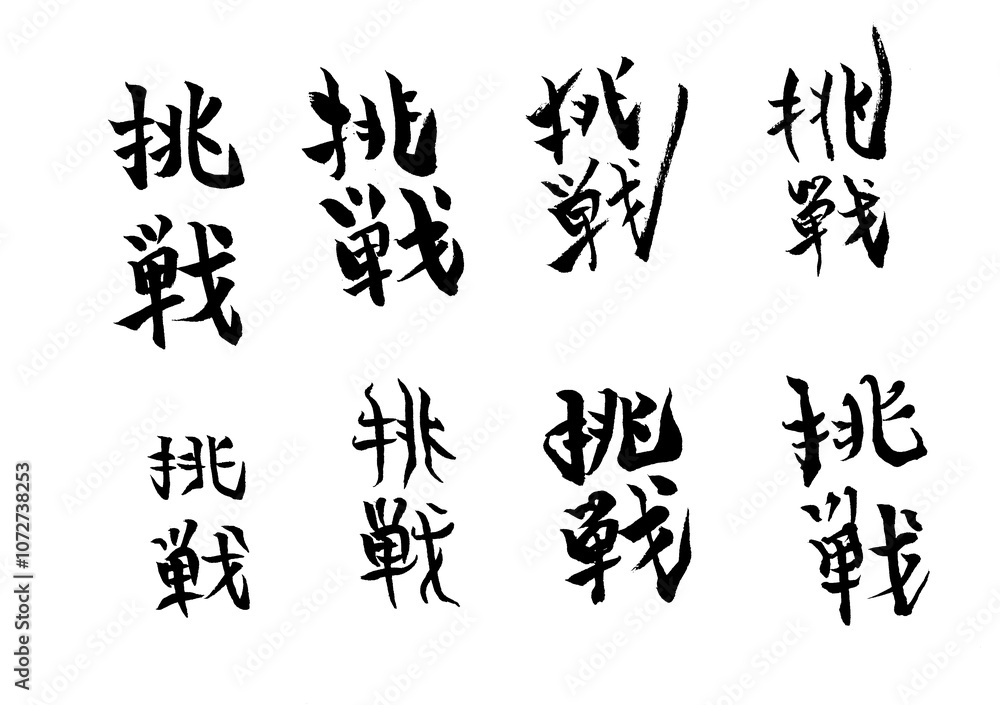 挑戦
挑戦
挑戦
挑戦
挑戦
挑戦
挑戦
挑戦
Adobe Stock | #1072738253